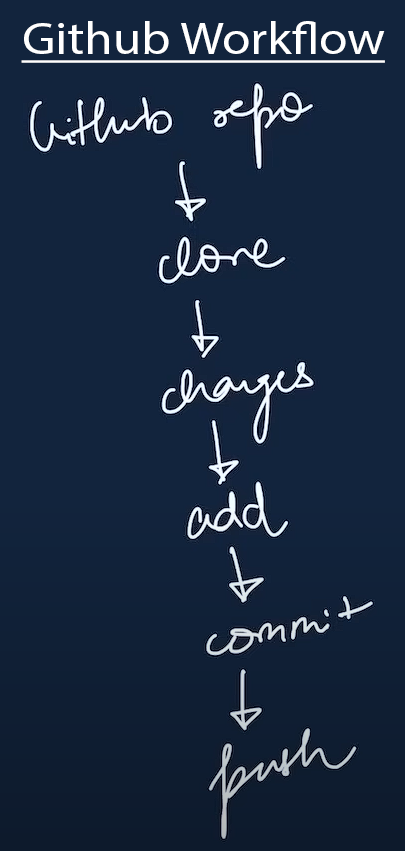 Github Workflow
Github repo
clone
changes
add
commit
push